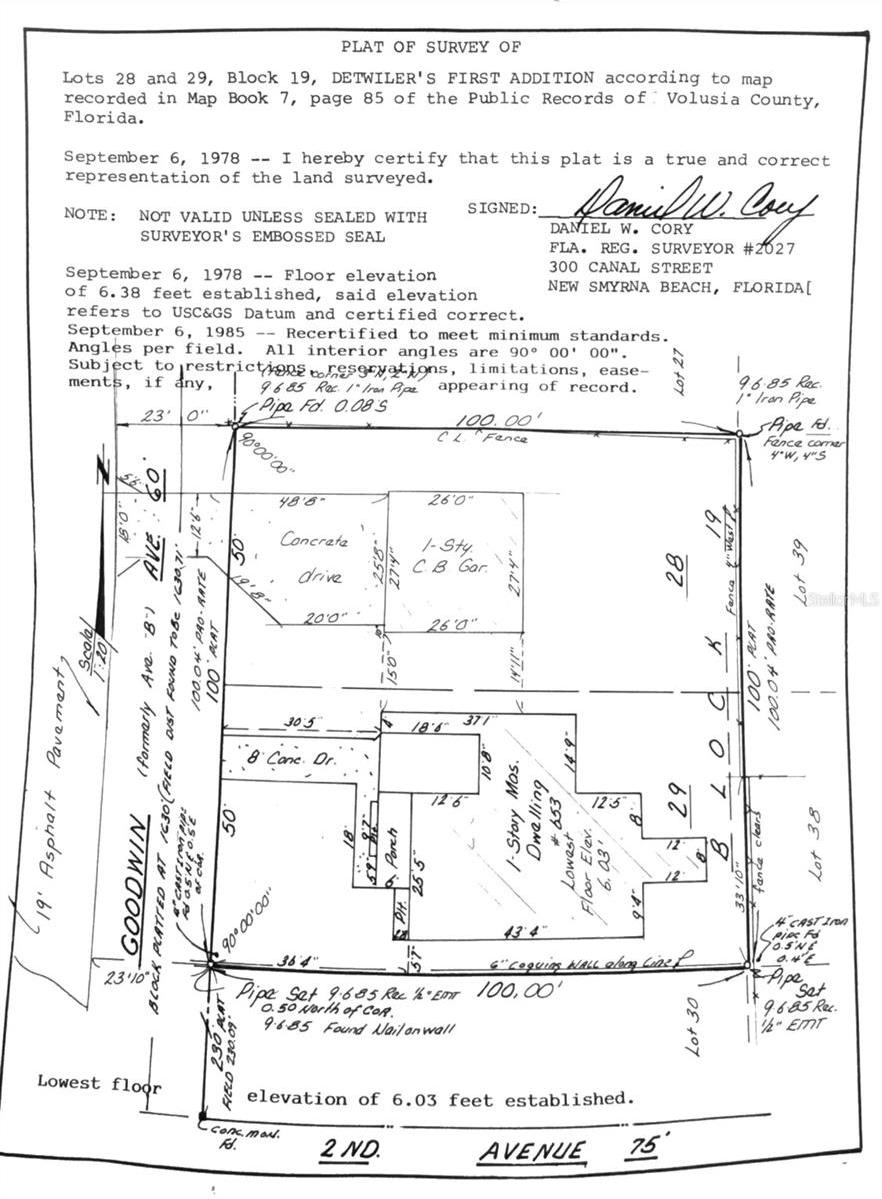 PLAT OF SURVEY OF
Lots 28 and 29, Block 19, DETWILER'S FIRST ADDITION according to map
recorded in Map Book 7, page 85 of the Public Records of Volusia County,
Florida.
September 6, 1978 -- I hereby certify that this plat is a true and correct
representation of the land surveyed.
NOTE: NOT VALID UNLESS SEALED WITH
SURVEYOR'S EMBOSSED SEAL
SIGNED: Daniel W. Cory
DANIEL W. CORY
FLA. REG. SURVEYOR #2027
300 CANAL STREET
NEW SMYRNA BEACH, FLORIDA[
September 6, 1978 -- Floor elevation
of 6.38 feet established, said elevation
refers to USC&GS Datum and certified correct.
September 6, 1985 -- Recertified to meet minimum standards.
Angles per field. All interior angles are 90° 00' 00".
Subject to restrictions, reservations, limitations, ease-
ments, if any, appearing of record.
9·6·85 Rec. 1" Iron Pipe
Pipe Fd. 0.08'S
Lot 27
9·6·85 Rec.
1" Iron Pipe
Pipe Fd.
Fence corner
4"W, 4"S
23' 0"
100.00'
C.L. Fence
90°00'00"
N
18'0"
12'6"
48'8"
26'0"
Concrete
drive
25'8"
27'4"
1-Sty.
C.B. Gar.
27'4"
19'8"
20'0"
26'0"
15'0"
14'11"
50'
28
19
Fence 4" West
Lot 39
StellarMLS
Scale
1:20
AVE. 60'
(formerly Ave. "B")
GOODWIN
BLOCK PLATTED AT 1630' (FIELD DIST FOUND TO BE 1630.71'
100.04' PRO-RATE
100' PLAT
100' PLAT
100.04' PRO-RATE
BLOCK
19' Asphalt Pavement
30.5'
8' Conc. Dr.
4'
37.1
18'6"
10'8"
12'6
14'9"
1-Story Mas.
Dwelling
# 653
Lowest
Floor Elev.
6.03'
12'5"
8'
12'
8'
12'
9'4"
29
50'
18'
Porch
25'5"
43'4"
5'7"
33'10"
fence clears
Lot 38
90°00'00"
36'4"
6" Coquina WALL along Line
4" CAST Iron
pipe Fd
0.5'N &
0.4'E
23'10"
Pipe Set 9·6·85 Rec ½" EMT
0.50 North of COR.
9·6·85 Found Nail on wall
100.00'
Pipe
Set
9·6·85 Rec.
½" EMT
Lot 30
230' PLAT
FIELD 230.09'
Lowest floor elevation of 6.03 feet established.
Conc. mon.
Fd.
2 ND. AVENUE 75'